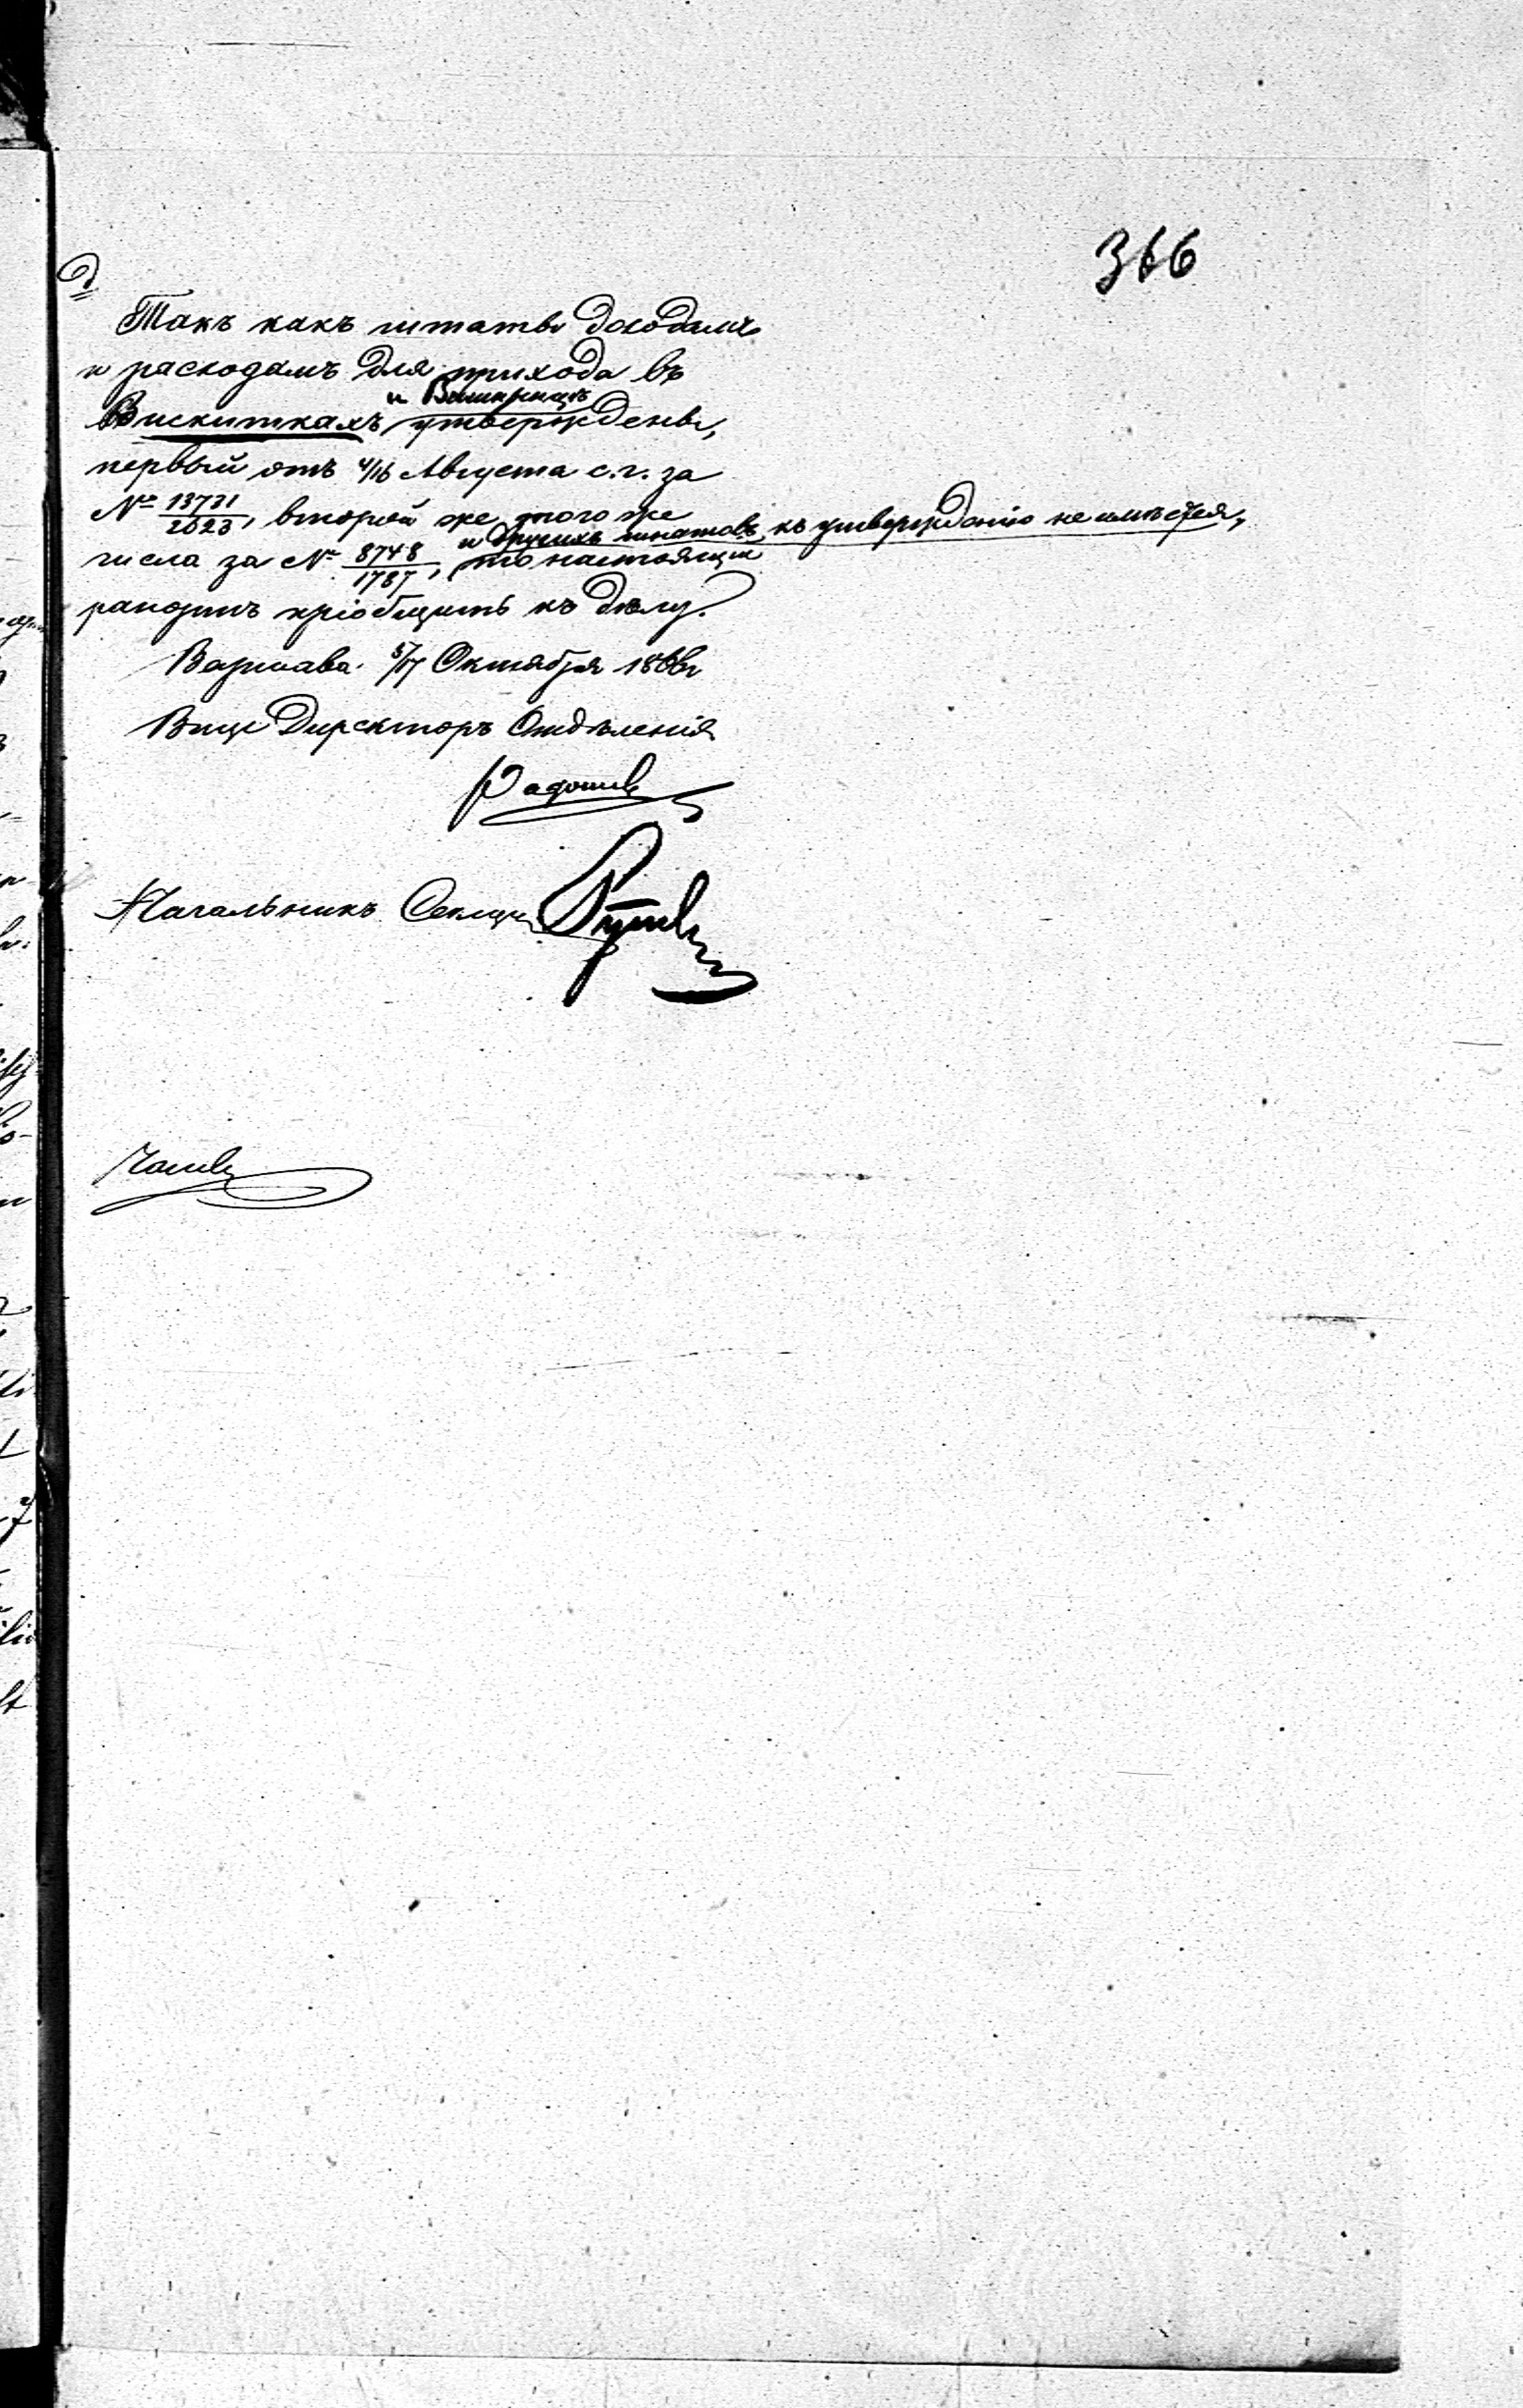 366
Такъ какъ штаты доходамъ
и расходамъ для прихода въ
Вискиткахъ и утверждены,
первый отъ 4/16 Августа с. г. за
№ 13731/2623, второй же того же
и другихъ штатовъ къ утвержденію не имѣется,
числа за № 8748/1787, то настоящій
рапортъ пріобщить къ дѣлу.
Варшава 5/17 Октября 1866г
Вице Директоръ Отдѣленія
Начальникъ Секціи